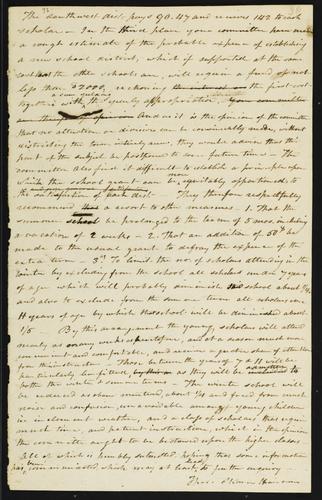 The southwest dist. pays 90.47 and receives 142 to each
scholar - In the third place your committee have made
a rough estimate of the probable expense of establishing
a new school district, which if supported at the same
cost the other schools are, will require a fund of not
less than $2000, reckoning the first cost
together with the yearly appropriation.
And it is the opinion of the committee
that no alteration or division can be conveniently made, without
disturbing the town intirely anew, they would advise that this
part of the subject be postponed to some future time - The
committee also find it difficult to establish a principle upon
which the school grant can be equitably apportioned to
satisfaction of each dist. They therefore respectfully
recommend a resort to other measures. 1. That the
summer school be prolonged to the term of 5 mos. including
a vacation of 2 weeks - 2. That an addition of 50$ be
made to the usual grant to defray the expense of the
extra term - 3d To limit the no. of scholars attending in the
winter by excluding from the school all scholars under years
of age which will probably diminish school about 1/4,
and also to exclude from the summer term all scholars over
11 years of age by which the school will be diminished about
1/5 By this arrangement the young scholars will attend
nearly as many weeks as heretofore, and at a season much more
convenient and comfortable, and receive a greater share of attention
from their instructor - Those between the years of 7 & 11 will be
particularly benefitted, as they will be admitted to
both the winter & summer terms - The winter school will
be reduced as above mentioned, about 1/4 and freed from much
noise and confusion, unavoidable among young children
in inclement weather, and a class of scholars that require
much time, and patient instruction, which in the opinion of
the committe ought to be bestowed upon the higher classes
All of which is humbly submitted, hoping that some information
has been communicated which may at least lead to further enquiry